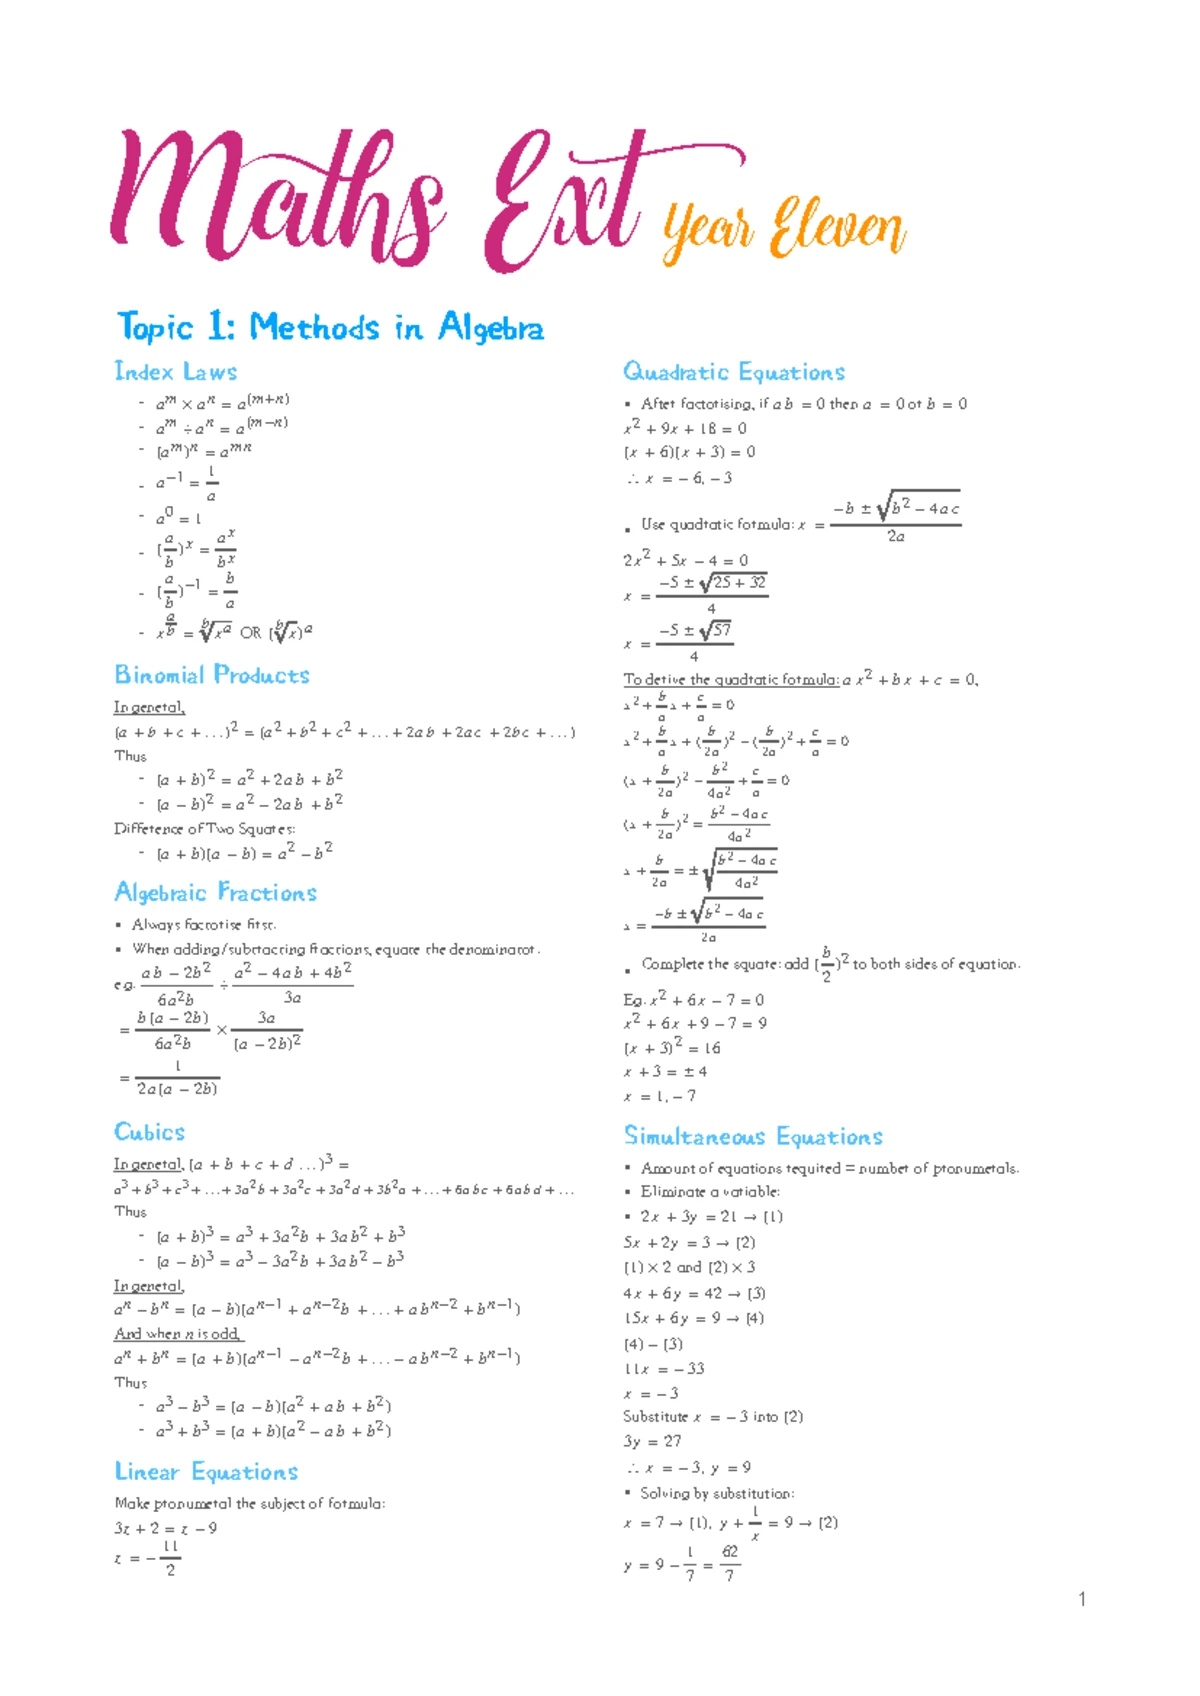 Maths Ext Year Eleven
Topic 1: Methods in Algebra
Index Laws
- a^m × a^n = a^(m+n)
- a^m ÷ a^n = a^(m−n)
- (a^m)^n = a^mn
- a^−1 = 1/a
- a^0 = 1
- (a/b)^x = a^x/b^x
- (a/b)^−1 = b/a
- x^(a/b) = ᵇ√x^a OR (ᵇ√x)^a
Binomial Products
In general,
(a + b + c + …)^2 = (a^2 + b^2 + c^2 + … + 2ab + 2ac + 2bc + …)
Thus
- (a + b)^2 = a^2 + 2ab + b^2
- (a − b)^2 = a^2 − 2ab + b^2
Difference of Two Squares:
- (a + b)(a − b) = a^2 − b^2
Algebraic Fractions
▪ Always factorise first.
▪ When adding/subtracting fractions, equate the denominator.
e.g. (ab − 2b^2)/(6a^2b) ÷ (a^2 − 4ab + 4b^2)/(3a)
= b(a − 2b)/(6a^2b) × 3a/(a − 2b)^2
= 1/(2a(a − 2b))
Cubics
In general, (a + b + c + d …)^3 =
a^3 + b^3 + c^3 + … + 3a^2b + 3a^2c + 3a^2d + 3b^2a + … + 6abc + 6abd + …
Thus
- (a + b)^3 = a^3 + 3a^2b + 3ab^2 + b^3
- (a − b)^3 = a^3 − 3a^2b + 3ab^2 − b^3
In general,
a^n − b^n = (a − b)(a^(n−1) + a^(n−2)b + … + ab^(n−2) + b^(n−1))
And when n is odd,
a^n + b^n = (a + b)(a^(n−1) − a^(n−2)b + … − ab^(n−2) + b^(n−1))
Thus
- a^3 − b^3 = (a − b)(a^2 + ab + b^2)
- a^3 + b^3 = (a + b)(a^2 − ab + b^2)
Linear Equations
Make pronumeral the subject of formula:
3z + 2 = z − 9
z = −11/2
Quadratic Equations
▪ After factorising, if ab = 0 then a = 0 or b = 0
x^2 + 9x + 18 = 0
(x + 6)(x + 3) = 0
∴ x = −6, −3
▪ Use quadratic formula: x = (−b ± √(b^2 − 4ac))/2a
2x^2 + 5x − 4 = 0
x = (−5 ± √(25 + 32))/4
x = (−5 ± √57)/4
To derive the quadratic formula: ax^2 + bx + c = 0,
x^2 + (b/a)x + c/a = 0
x^2 + (b/a)x + (b/2a)^2 − (b/2a)^2 + c/a = 0
(x + b/2a)^2 − b^2/4a^2 + c/a = 0
(x + b/2a)^2 = (b^2 − 4ac)/4a^2
x + b/2a = ± √((b^2 − 4ac)/4a^2)
x = (−b ± √(b^2 − 4ac))/2a
▪ Complete the square: add (b/2)^2 to both sides of equation.
Eg. x^2 + 6x − 7 = 0
x^2 + 6x + 9 − 7 = 9
(x + 3)^2 = 16
x + 3 = ± 4
x = 1, −7
Simultaneous Equations
▪ Amount of equations required = number of pronumerals.
▪ Eliminate a variable:
▪ 2x + 3y = 21 → (1)
5x + 2y = 3 → (2)
(1) × 2 and (2) × 3
4x + 6y = 42 → (3)
15x + 6y = 9 → (4)
(4) − (3)
11x = −33
x = −3
Substitute x = −3 into (2)
3y = 27
∴ x = −3, y = 9
▪ Solving by substitution:
x = 7 → (1), y + 1/x = 9 → (2)
y = 9 − 1/7 = 62/7
1